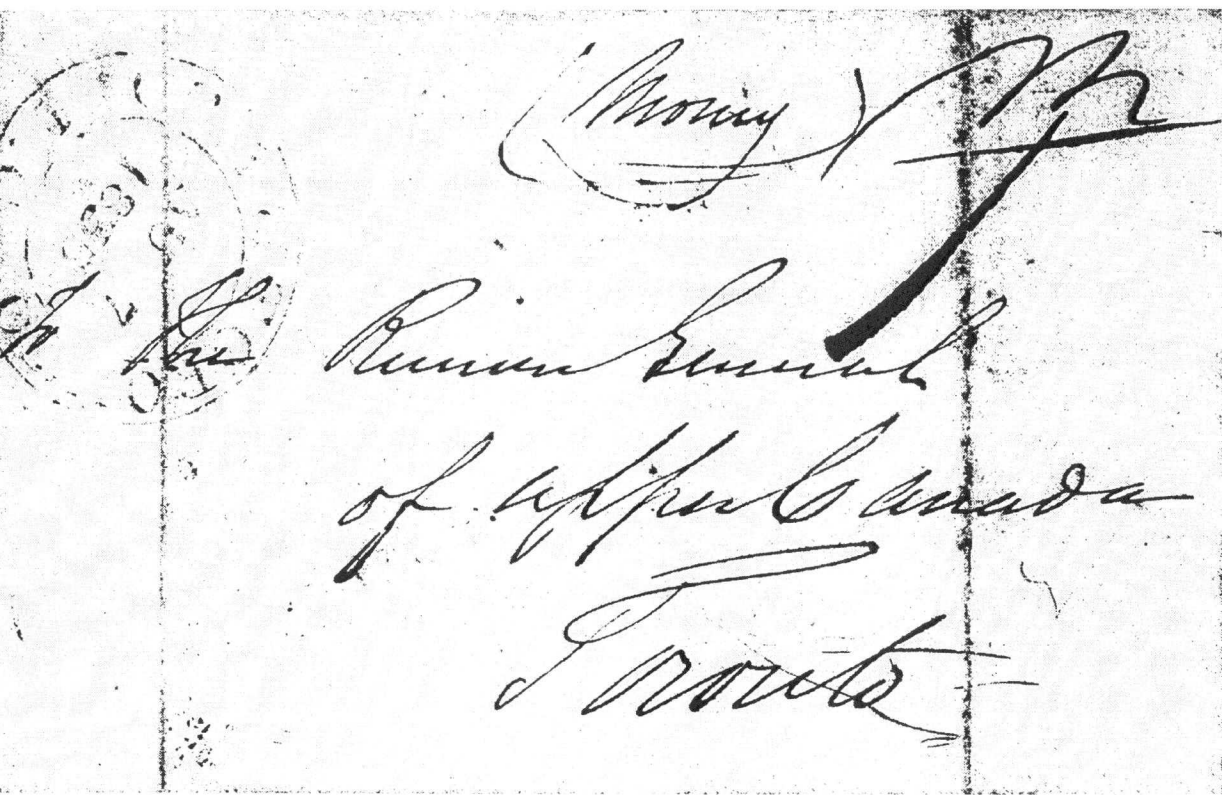 (Money)
To the Receiver General
of upper Canada
Toronto